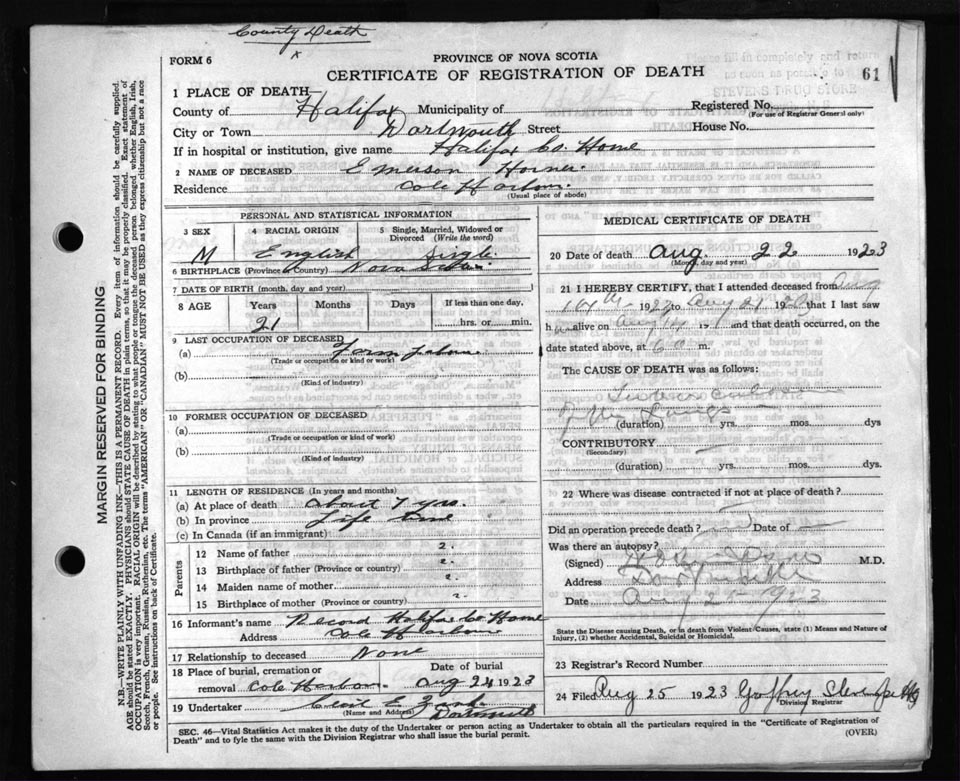 County Death
x
FORM 6
PROVINCE OF NOVA SCOTIA
CERTIFICATE OF REGISTRATION OF DEATH
61
1 PLACE OF DEATH—
County of Halifax Municipality of Registered No.
(For use of Registrar General only)
City or Town Dartmouth Street House No.
If in hospital or institution, give name Halifax Co. Home
2 NAME OF DECEASED Emerson Horner
Residence Cole Harbour.
(Usual place of abode)
PERSONAL AND STATISTICAL INFORMATION
3 SEX 4 RACIAL ORIGIN 5 Single, Married, Widowed or Divorced (Write the word)
M English Single
6 BIRTHPLACE (Province or Country) Nova Scotia
7 DATE OF BIRTH (month, day and year)
8 AGE Years Months Days If less than one day,
21 hrs. or min.
9 LAST OCCUPATION OF DECEASED
(a) Farm Labour
(Trade or occupation or kind of work)
(b)
(Kind of industry)
10 FORMER OCCUPATION OF DECEASED
(a)
(Trade or occupation or kind of work)
(b)
(Kind of industry)
11 LENGTH OF RESIDENCE (In years and months)
(a) At place of death about 7 yrs.
(b) In province Life time
(c) In Canada (if an immigrant)
Parents
12 Name of father ?
13 Birthplace of father (Province or country) ?
14 Maiden name of mother ?
15 Birthplace of mother (Province or country) ?
16 Informant's name Record Halifax Co Home
Address Cole Harbour
17 Relationship to deceased None
18 Place of burial, cremation or Date of burial
removal Cole Harbour. Aug 24 1923
19 Undertaker
(Name and Address) Dartmouth
MEDICAL CERTIFICATE OF DEATH
20 Date of death Aug. 22 1923
(Month, day and year)
21 I HEREBY CERTIFY, that I attended deceased from Aug
14th 1923 to Aug 21 1923 that I last saw
h alive on Aug 14 19 and that death occurred, on
date stated above, at 6 m.
The CAUSE OF DEATH was as follows:
Tuberculosis
of the Lungs
(duration) yrs. mos. dys
CONTRIBUTORY
(Secondary)
(duration) yrs. mos. dys.
22 Where was disease contracted if not at place of death?
Did an operation precede death? Date of
Was there an autopsy?
(Signed) M.D.
Address Dartmouth
Date Aug 21 1923
State the Disease causing Death, or in death from Violent Causes, state (1) Means and Nature of Injury, (2) whether Accidental, Suicidal or Homicidal.
23 Registrar's Record Number
24 Filed Aug 25 1923 Godfrey
Division Registrar
SEC. 46—Vital Statistics Act makes it the duty of the Undertaker or person acting as Undertaker to obtain all the particulars required in the "Certificate of Registration of
Death" and to fyle the same with the Division Registrar who shall issue the burial permit.
(OVER)
MARGIN RESERVED FOR BINDING
N.B.—WRITE PLAINLY WITH UNFADING INK—THIS IS A PERMANENT RECORD. Every item of information should be carefully supplied.
AGE should be stated EXACTLY. PHYSICIANS should STATE CAUSE OF DEATH in plain terms, so that it may be properly classified. Exact statement of
OCCUPATION is very important. RACIAL ORIGIN will be described by stating to what people or tongue the deceased person belonged whether English, Irish,
Scotch, French, German, Russian, Ruthenian, etc. The terms "AMERICAN" or "CANADIAN" MUST NOT BE USED as they express citizenship but not a race
or people. See instructions on back of Certificate.